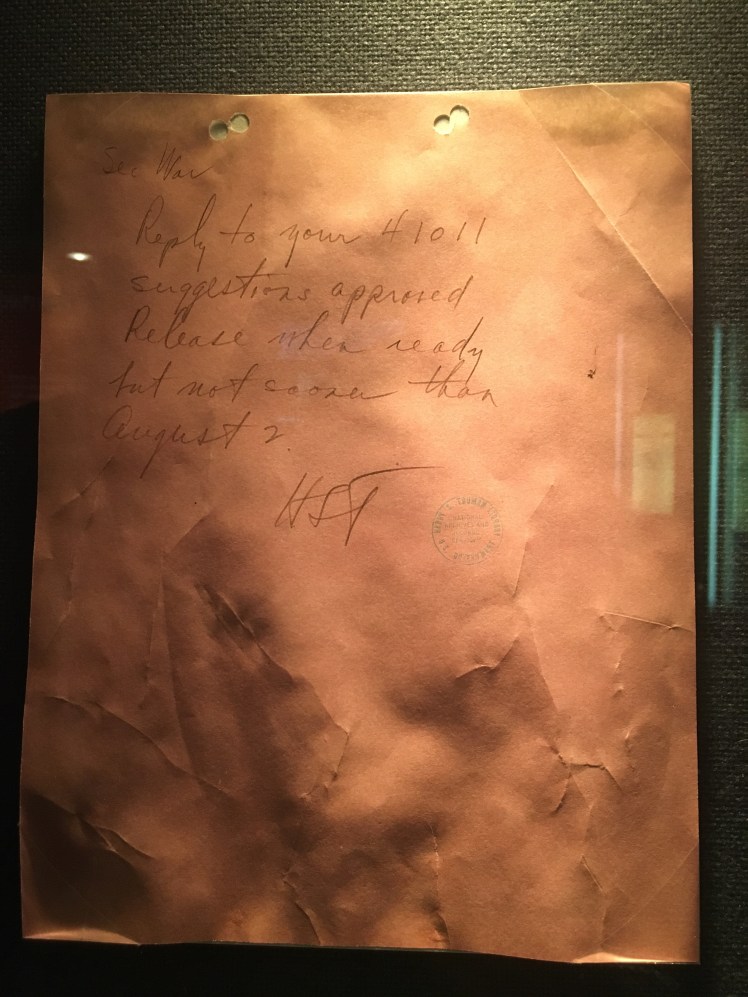 Sec War
Reply to your 41011
suggestions approved
Release when ready
but not sooner than
August 2
HST
HARRY S. TRUMAN LIBRARY